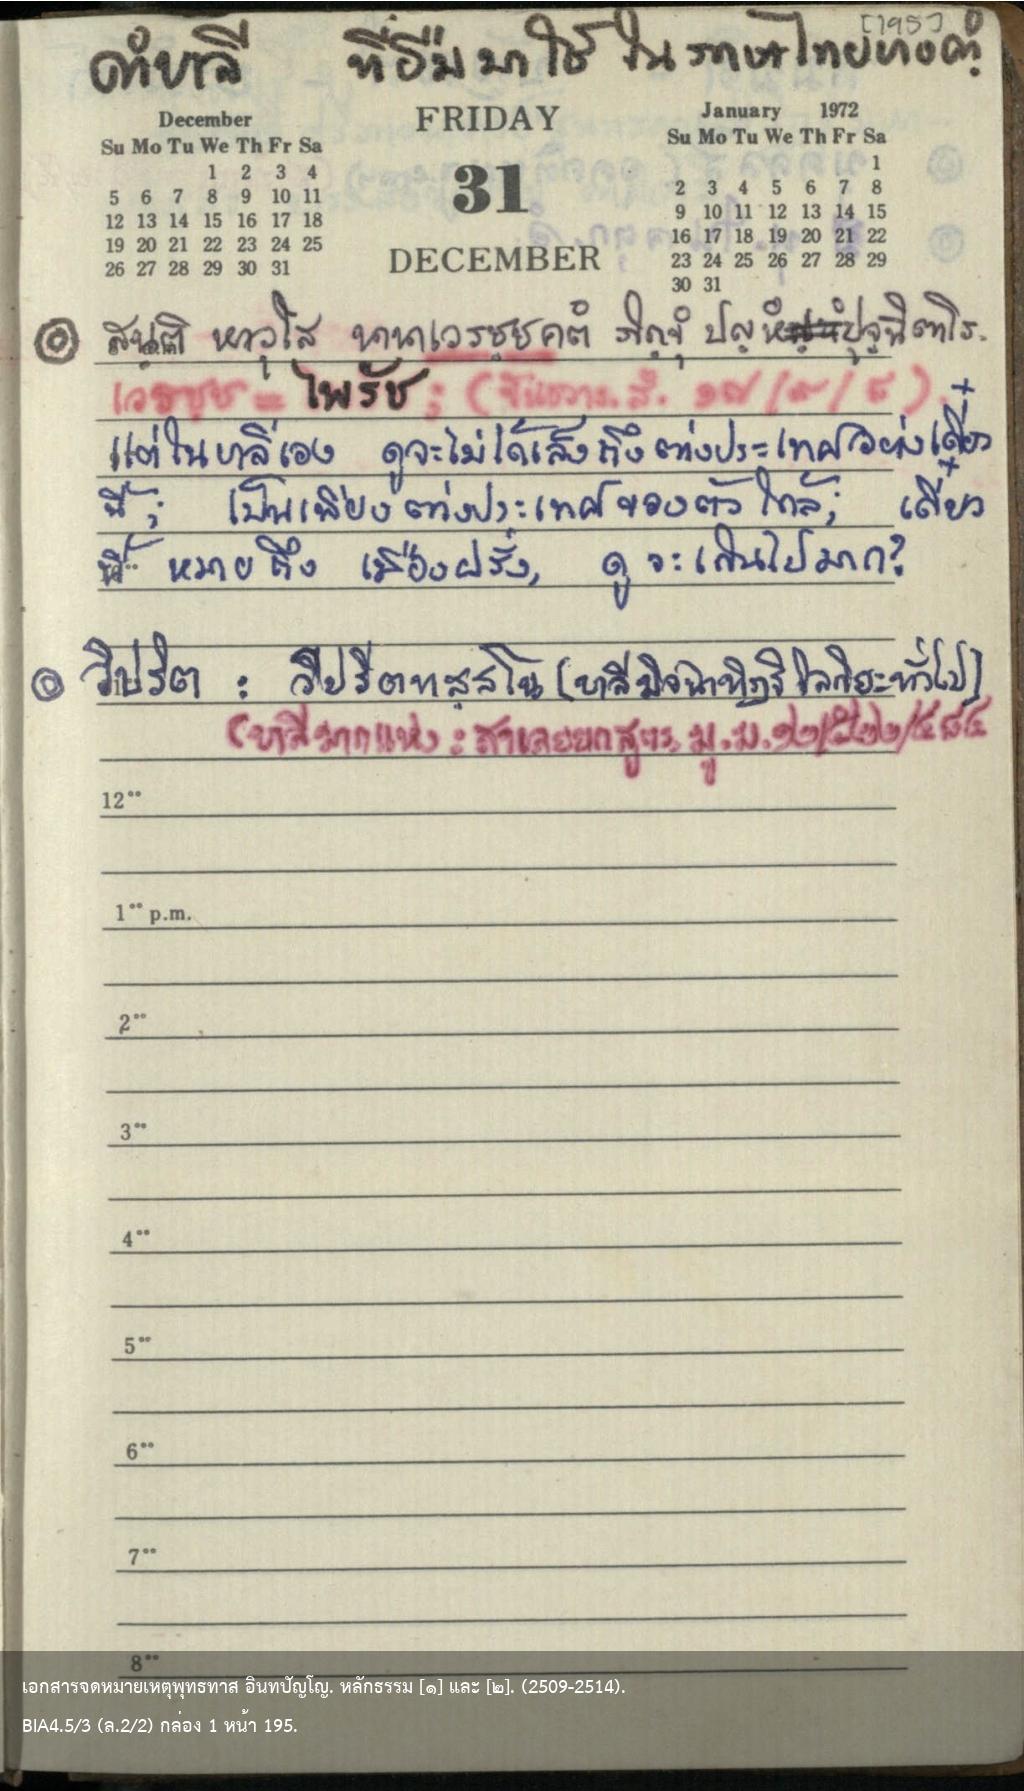 [195]
คำบาลี ที่ยืมมาใช้ในภาษาไทยบางคำ
December
Su Mo Tu We Th Fr Sa
1 2 3 4
5 6 7 8 9 10 11
12 13 14 15 16 17 18
19 20 21 22 23 24 25
26 27 28 29 30 31
FRIDAY
31
DECEMBER
January 1972
Su Mo Tu We Th Fr Sa
1
2 3 4 5 6 7 8
9 10 11 12 13 14 15
16 17 18 19 20 21 22
23 24 25 26 27 28 29
30 31
สนฺติ หาวุโส นานาเวรชฺชคตํ ภิกฺขุํ ปญฺหํ ปุจฺฉิตาโร.
เวรชฺช = ไพรัช : (ขันธวาร. สํ. ๑๗/๙/๘).
แต่ในบาลีเอง ดูจะไม่ได้เล็งถึงต่างประเทศอย่างเดี๋ยว
นี้; เป็นเพียงต่างประเทศของตัวใกล้ๆ; เดี๋ยว
นี้ หมายถึง เมืองฝรั่ง, ดูจะเกินไปมาก?
วิปริต : วิปรีตทสฺสโน (บาลีมิจฉาทิฏฐิ โลกิยะทั่วไป)
(บาลีมากแห่ง : สาเลยยกสูตร. มู.ม. ๑๒/๕๒๒/๔๘๔
12⁰⁰
1⁰⁰ p.m.
2⁰⁰
3⁰⁰
4⁰⁰
5⁰⁰
6⁰⁰
7⁰⁰
8⁰⁰
เอกสารจดหมายเหตุพุทธทาส อินทปัญโญ. หลักธรรม [๑] และ [๒]. (2509-2514).
BIA4.5/3 (ล.2/2) กล่อง 1 หน้า 195.